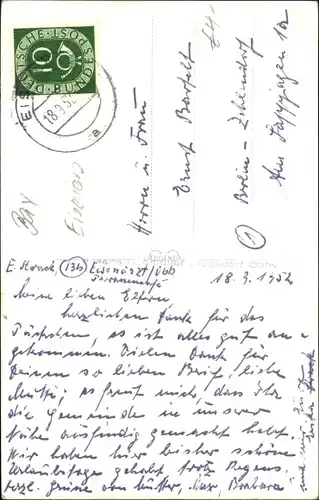 DEUTSCHE BUNDESPOST
10
18.9.52
a
Bay
Herrn u. Frau
Ernst
Berlin - Zehlendorf
1
E. (13b) Eisenärzt/Obb
18. 9. 1952
Meine lieben Eltern,
herzlichen Dank für das
Päckchen, es ist alles gut an-
gekommen. Vielen Dank für
Deinen so lieben Brief, liebe
Mutti, es freut mich, dass Ihr
die Gemeinde in unserer
Nähe ausfindig gemacht habt.
Wir haben hier bisher schöne
Urlaubstage gehabt, trotz Regens.
herzl. Grüsse von Mutter, Barbara